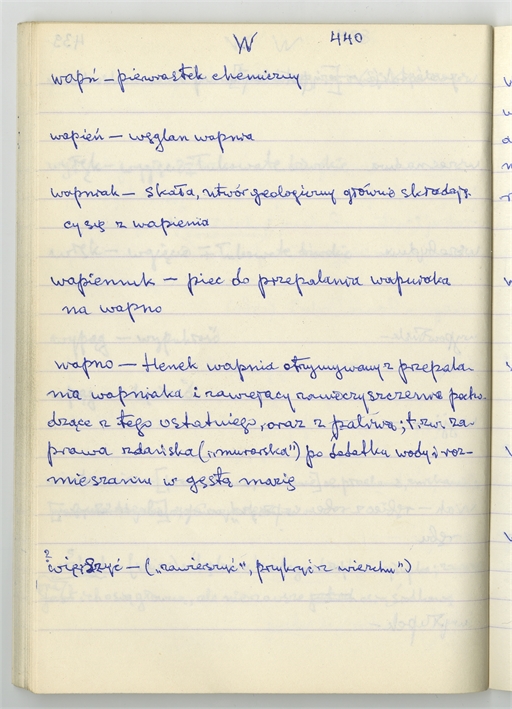 W 440
wapń – pierwiastek chemiczny
wapień – węglan wapnia
wapniak – skała, utwór geologiczny głównie składają-
cy się z wapienia
wapiennik – piec do przepalania wapniaka
na wapno
wapno – tlenek wapnia otrzymywany z przepala-
nia wapniaka i zawierający zanieczyszczenia pocho-
dzące z tego ostatniego, oraz z paliwa; t.zw. za-
prawa zdańska („murarska") po dodatku wody i roz-
mieszaniu w gęstą mazię
– („zawieszyć", przykryć z wierzchu")